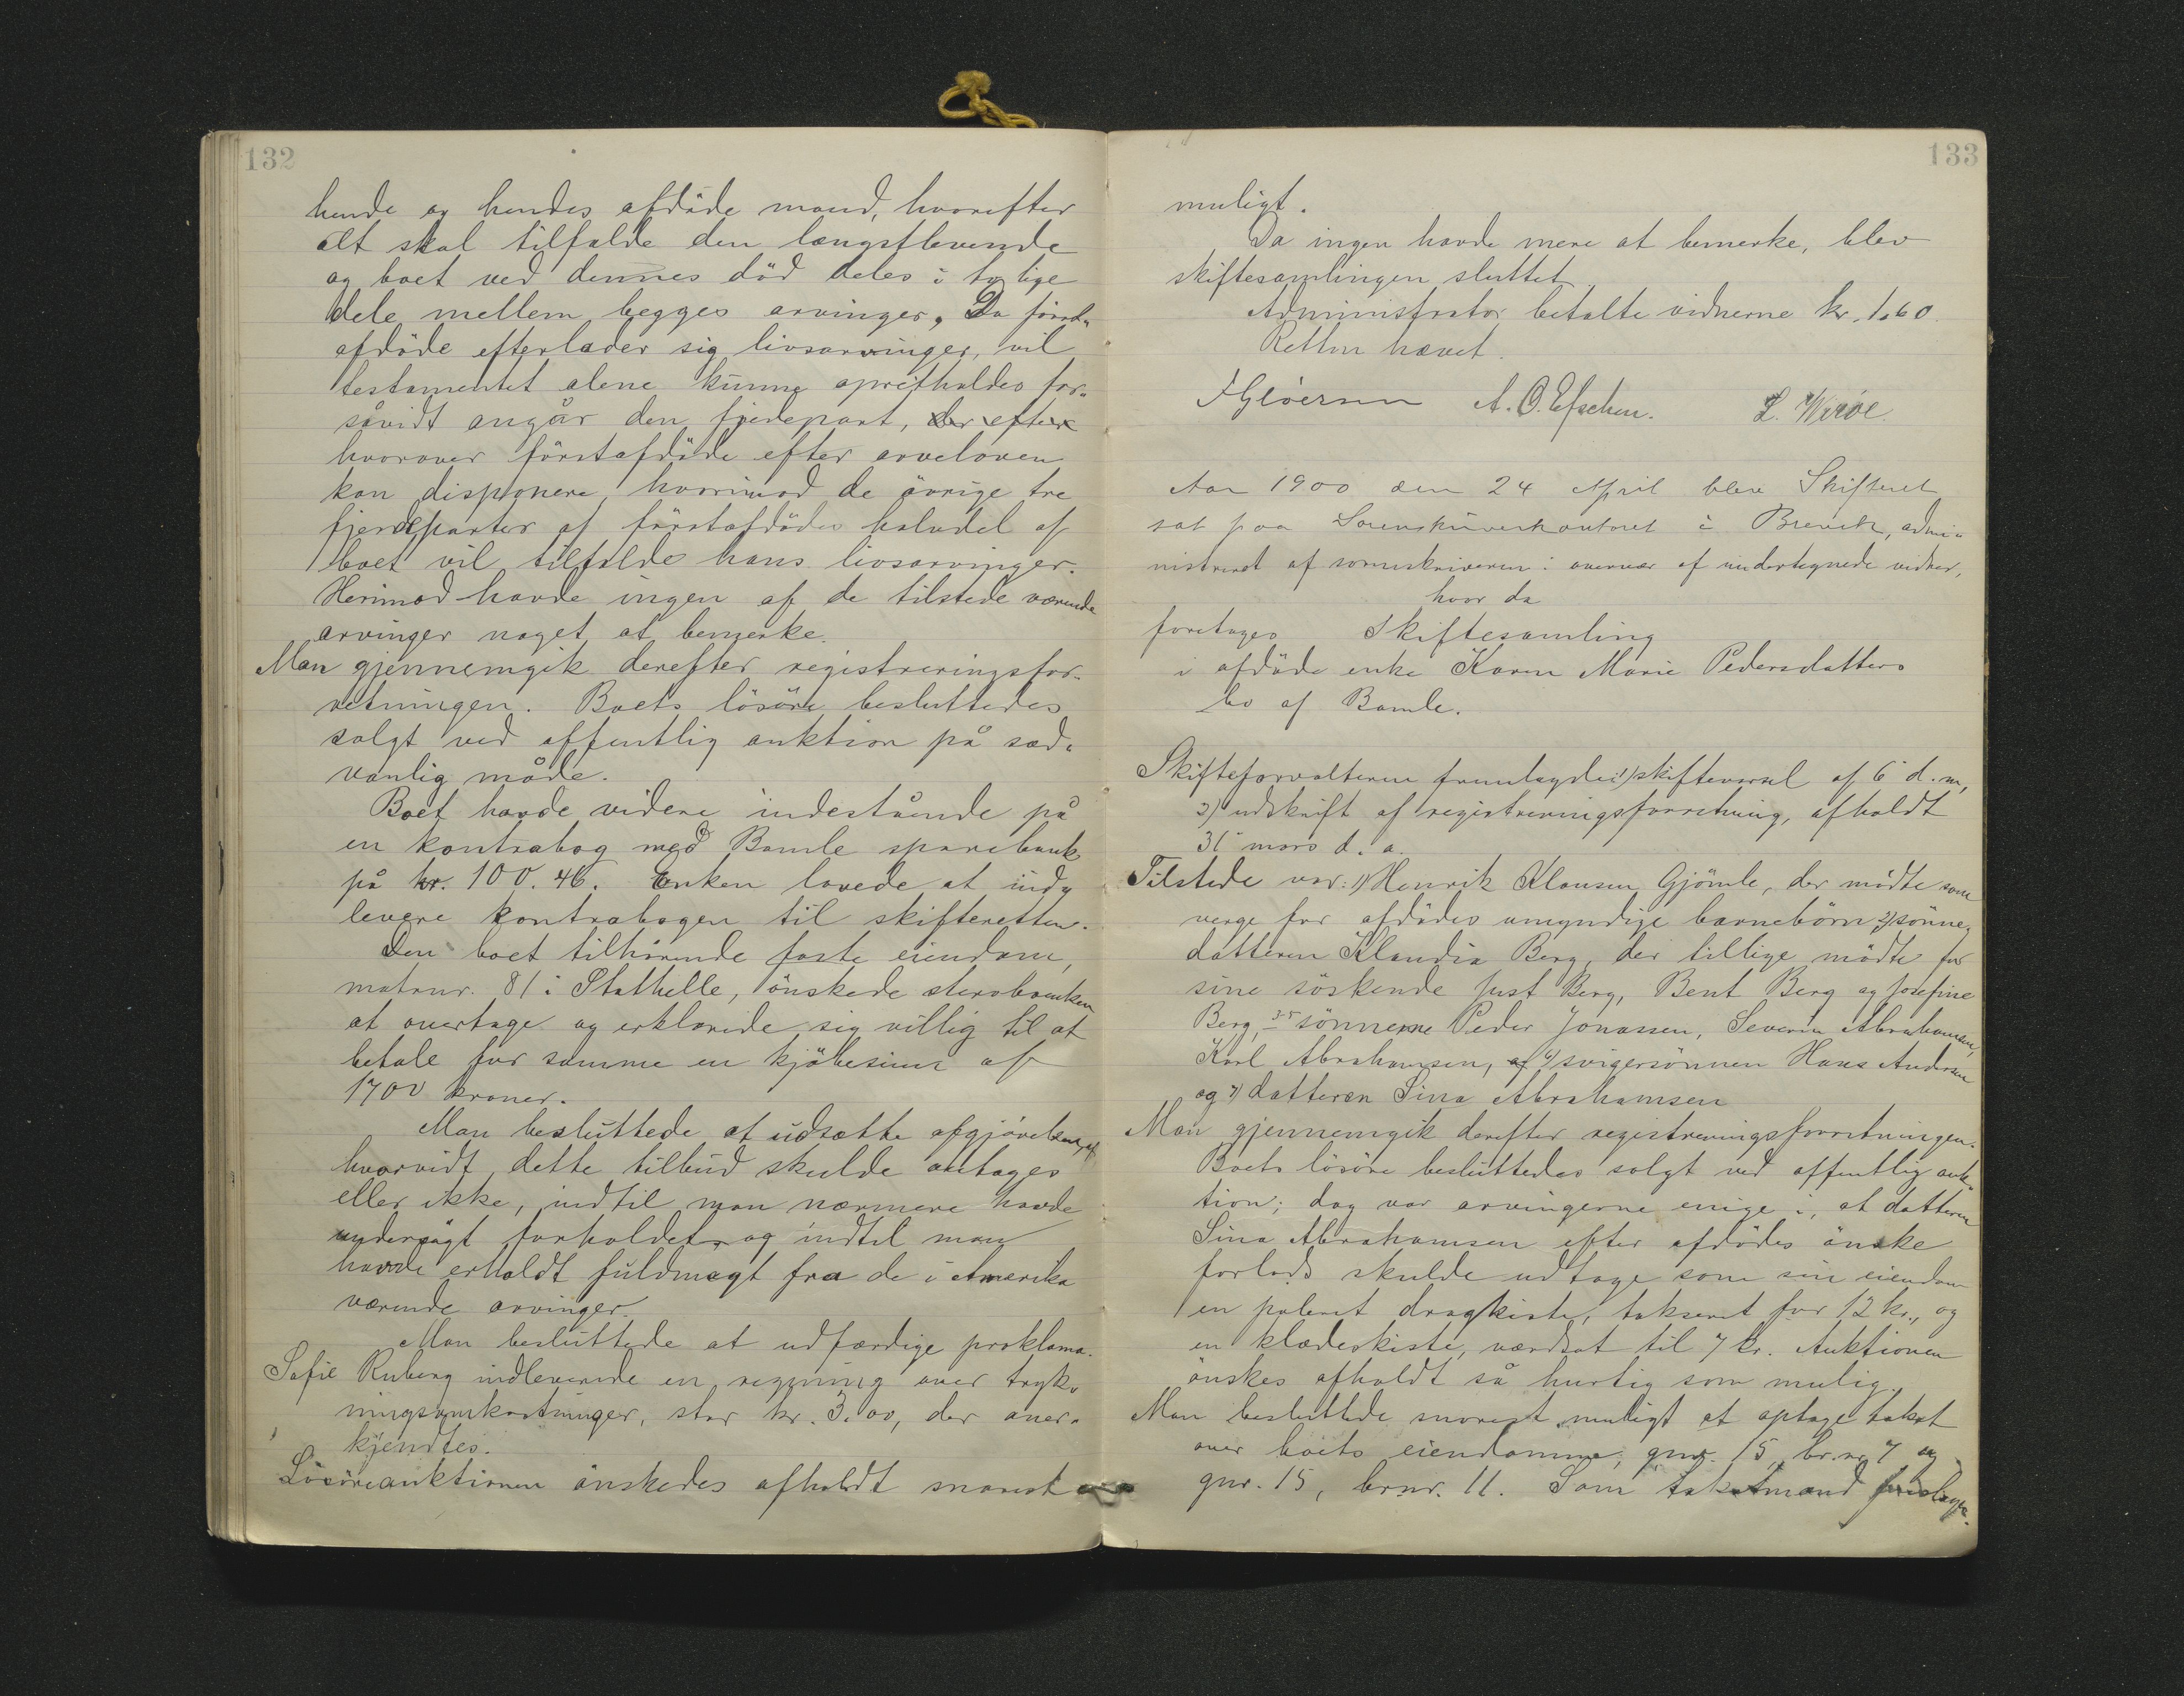 132
hende og hendes afdöde mand, hvorefter
alt skal tilfalde den længstlevende
og boet ved dennes död deles i to lige
dele mellem begges arvinger. Da först-
afdöde efterlader sig livsarvinger, vil
testamentet alene kunne opretholdes for-
såvidt angår den fjerdepart, der efter
hvorover förstafdöde efter arveloven
kan disponere, hvorimod de övrige tre
fjerdeparter af förstafdödes halvdel af
boet vil tilfalde hans livsarvinger.
Herimod havde ingen af de tilstede værende
arvinger noget at bemerke.
Man gjennemgik derefter registreringsfor-
retningen. Boets lösöre besluttedes
solgt ved offentlig auktion på sæd-
vanlig måde.
Boet havde videre indestående på
en kontrabog med Bamle sparebank
på kr. 100.46. Enken lovede at ind-
levere kontrabogen til skifteretten.
Den boet tilhörende faste eiendom,
matrnr. 81 i Stathelle, önskede sterboenken
at overtage og erklærede sig villig til at
betale for samme en kjöbesum af
1700 kroner.
Man besluttede at udsætte afgjörelsen af
hvorvidt dette tilbud skulde antages
eller ikke, indtil man nærmere havde
undersögt forholdet og indtil man
havde erholdt fuldmagt fra de i Amerika
værende arvinger.
Man besluttede at udfærdige proklama.
Sofie Ruberg indleverede en regning over tryk-
ningsomkostninger, stor kr. 3.00, der aner-
kjendtes.
Lösöreauktionen önskedes afholdt snarest
133
muligt.
Da ingen havde mere at bemerke, blev
skiftesamlingen sluttet
Administrator betalte vidnerne kr. 1.60.
Retten hævet.
A. O. L. Wiröe.
Aar 1900 den 24 April blev Skifteret
sat paa Sorenskriverkontoret i Brevik, admi-
nistreret af sorenskriveren i overvær af undertegnede vidner,
hvor da
foretages Skiftesamling
i afdöde enke Karen Marie Pedersdatters
bo af Bamle.
Skifteforvalteren fremlagde: 1) skiftevarsel af 6 d. m,
2) udskrift af registreringsforretning, afholdt
31 mars d. a.
Tilstede var: 1) Henrik Klausen Gjömle, der mödte som
verge for afdödes umyndige barnebörn 2) sönne-
datteren Klaudia Berg, der tillige mödte for
sine söskende Just Berg, Bent Berg og Josefine
Berg, 3-5 sönnerne Peder Jonassen, Severin Abrahamsen,
Karl Abrahamsen, af 6) svigersönnen Hans Andersen
og 7) datteren Sina Abrahamsen
Man gjennemgik derefter registreringsforretningen.
Boets lösöre besluttedes solgt ved offentlig auk-
tion; dog var arvingerne enige i, at datteren
Sina Abrahamsen efter afdödes önske
forlods skulde udtage som sin eiendom
en poleret dragkiste, takseret for 12 kr., og
en klædeskiste, værdsat til 7 kr. Auktionen
önskes afholdt så hurtig som mulig.
Man besluttede snarest muligt at optage takst
over boets eiendomme, gnr. 15, br.nr. 7 og
gnr. 15, brnr. 11. Som takstmænd